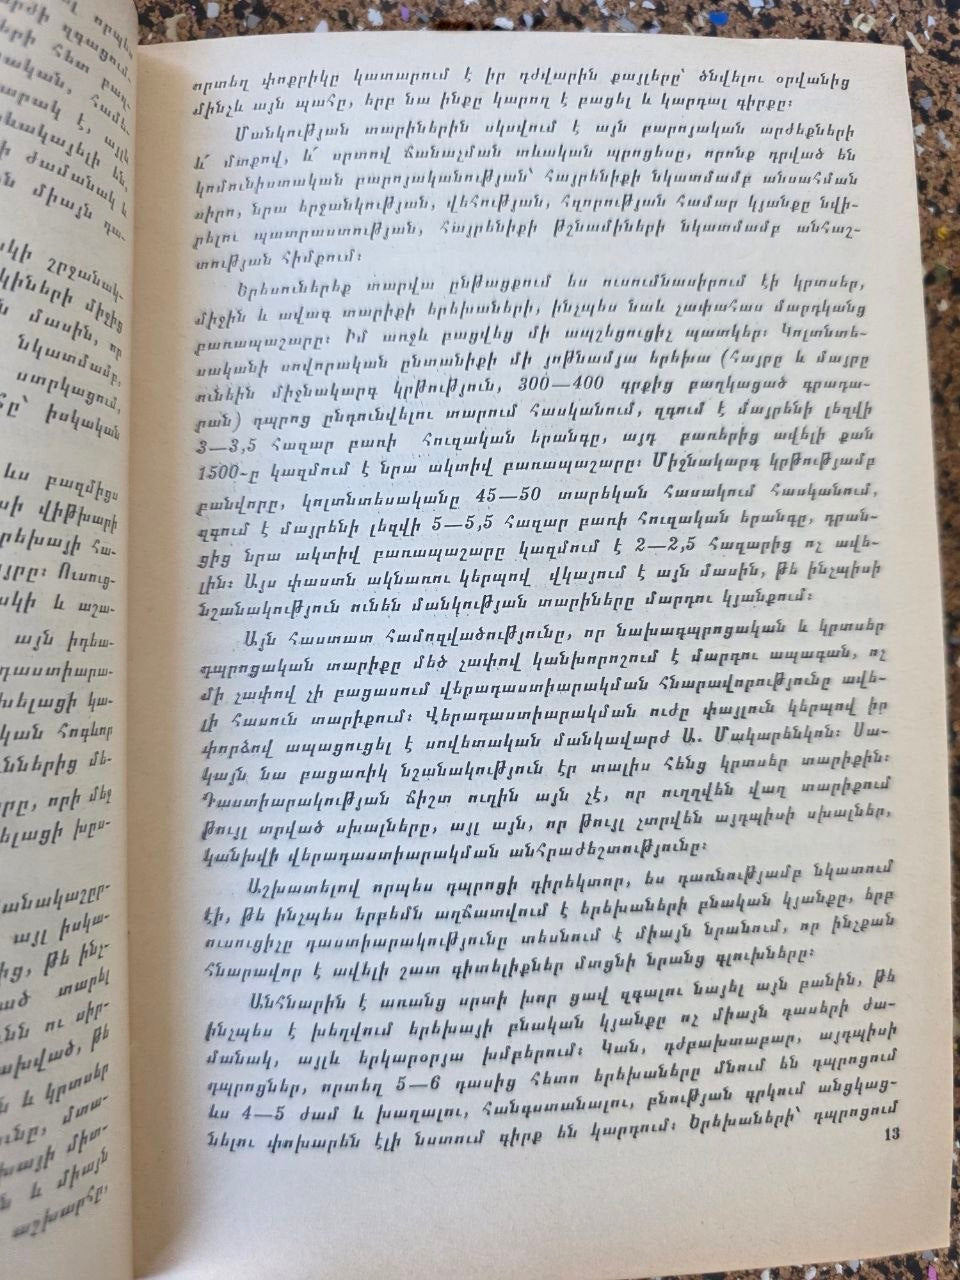 որտեղ փոքրիկը կատարում է իր դժվարին քայլերը՝ ծնվելու օրվանից
մինչև այն պահը, երբ նա ինքը կարող է բացել և կարդալ գիրքը։
Մանկության տարիներին սկսվում է այն բարոյական արժեքների
և՛ մտքով, և՛ սրտով ճանաչման տևական պրոցեսը, որոնք դրված են
կոմունիստական բարոյականության՝ հայրենիքի նկատմամբ անսահման
սիրո, նրա երջանկության, վեհության, հզորության համար կյանքը նվի-
րելու պատրաստության, հայրենիքի թշնամիների նկատմամբ անհաշ-
տության հիմքում։
Երեսուներեք տարվա ընթացքում ես ուսումնասիրում էի կրտսեր,
միջին և ավագ տարիքի երեխաների, ինչպես նաև չափահաս մարդկանց
բառապաշարը։ Իմ առջև բացվեց մի ապշեցուցիչ պատկեր։ Կոլտնտե-
սականի սովորական ընտանիքի մի յոթնամյա երեխա (հայրը և մայրը
ունեին միջնակարգ կրթություն, 300—400 գրքից բաղկացած գրադա-
րան) դպրոց ընդունվելու տարում հասկանում, զգում է մայրենի լեզվի
3—3,5 հազար բառի հուզական երանգը, այդ բառերից ավելի քան
1500-ը կազմում է նրա ակտիվ բառապաշարը։ Միջնակարգ կրթությամբ
բանվորը, կոլտնտեսականը 45—50 տարեկան հասակում հասկանում,
զգում է մայրենի լեզվի 5—5,5 հազար բառի հուզական երանգը, դրան-
ցից նրա ակտիվ բառապաշարը կազմում է 2—2,5 հազարից ոչ ավե-
լին։ Այս փաստն ակնառու կերպով վկայում է այն մասին, թե ինչպիսի
նշանակություն ունեն մանկության տարիները մարդու կյանքում։
Այն հաստատ համոզվածությունը, որ նախադպրոցական և կրտսեր
դպրոցական տարիքը մեծ չափով կանխորոշում է մարդու ապագան, ոչ
մի չափով չի բացասում վերադաստիարակման հնարավորությունը ավե-
լի հասուն տարիքում։ Վերադաստիարակման ուժը փայլուն կերպով իր
փորձով ապացուցել է սովետական մանկավարժ Ա. Մակարենկոն։ Սա-
կայն նա բացառիկ նշանակություն էր տալիս հենց կրտսեր տարիքին։
Դաստիարակության ճիշտ ուղին այն չէ, որ ուղղվեն վաղ տարիքում
թույլ տրված սխալները, այլ այն, որ թույլ չտրվեն այդպիսի սխալներ,
կանխվի վերադաստիարակման անհրաժեշտությունը։
Աշխատելով որպես դպրոցի դիրեկտոր, ես դառնությամբ նկատում
էի, թե ինչպես երբեմն աղճատվում է երեխաների բնական կյանքը, երբ
ուսուցիչը դաստիարակությունը տեսնում է միայն նրանում, որ ինչքան
հնարավոր է ավելի շատ գիտելիքներ մտցնի նրանց գլուխները։
Անհնարին է առանց սրտի խոր ցավ զգալու նայել այն բանին, թե
ինչպես է խեղվում երեխայի բնական կյանքը ոչ միայն դասերի ժա-
մանակ, այլև երկարօրյա խմբերում։ Կան, դժբախտաբար, այդպիսի
դպրոցներ, որտեղ 5—6 դասից հետո երեխաները մնում են դպրոցում
ևս 4—5 ժամ և խաղալու, հանգստանալու, բնության գրկում անցկաց-
նելու փոխարեն էլի նստում գիրք են կարդում։ Երեխաների՝ դպրոցում
13